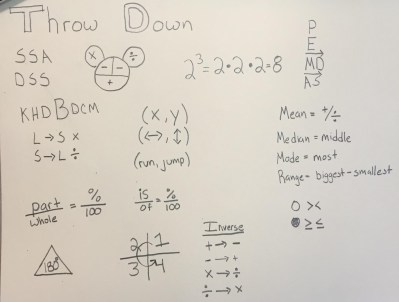 Throw Down
SSA
DSS
× ÷
- | -
+
2³=2•2•2=8
P
E
MD
AS
KHDBDCM
L→S ×
S→L ÷
(x,y)
(↔,↕)
(run, jump)
Mean = +/÷
Median = middle
Mode = most
Range = biggest-smallest
part/whole = %/100
is/of = %/100
O ><
● ≥≤
180°
2 1
3 4
Inverse
+ → -
- → +
× → ÷
÷ → ×